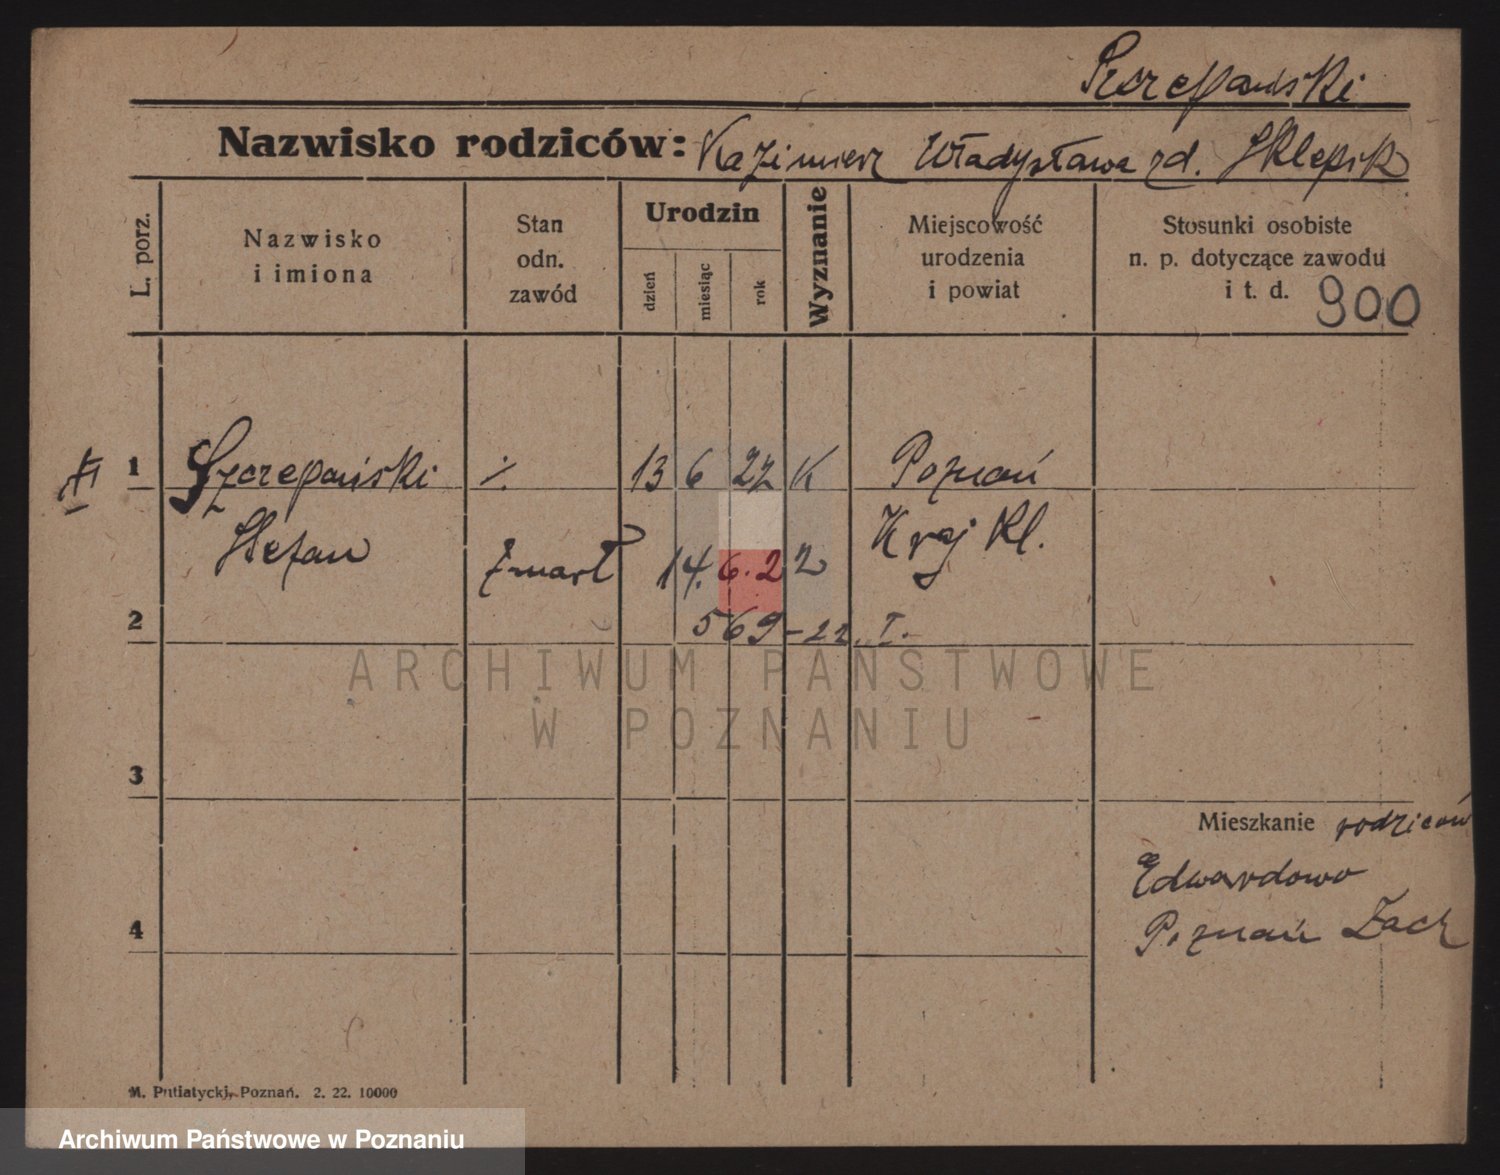 Szczepański
Nazwisko rodziców: Kazimierz Władysława zd.
L. porz.
Nazwisko
i imiona
Stan
odn.
zawód
Urodzin
dzień
miesiąc
rok
Wyznanie
Miejscowość
urodzenia
i powiat
Stosunki osobiste
n. p. dotyczące zawodu
i t. d. 900
1 Szczepański ·/. 13 6 22 K Poznań
Stefan Kraj Kl.
zmarł 14. 6. 22
2 569 - 22. I.
ARCHIWUM PAŃSTWOWE
W POZNANIU
3
Mieszkanie rodziców
Edwardowo
4 Poznań Zach
M. Putiatycki, Poznań. 2. 22. 10000
Archiwum Państwowe w Poznaniu